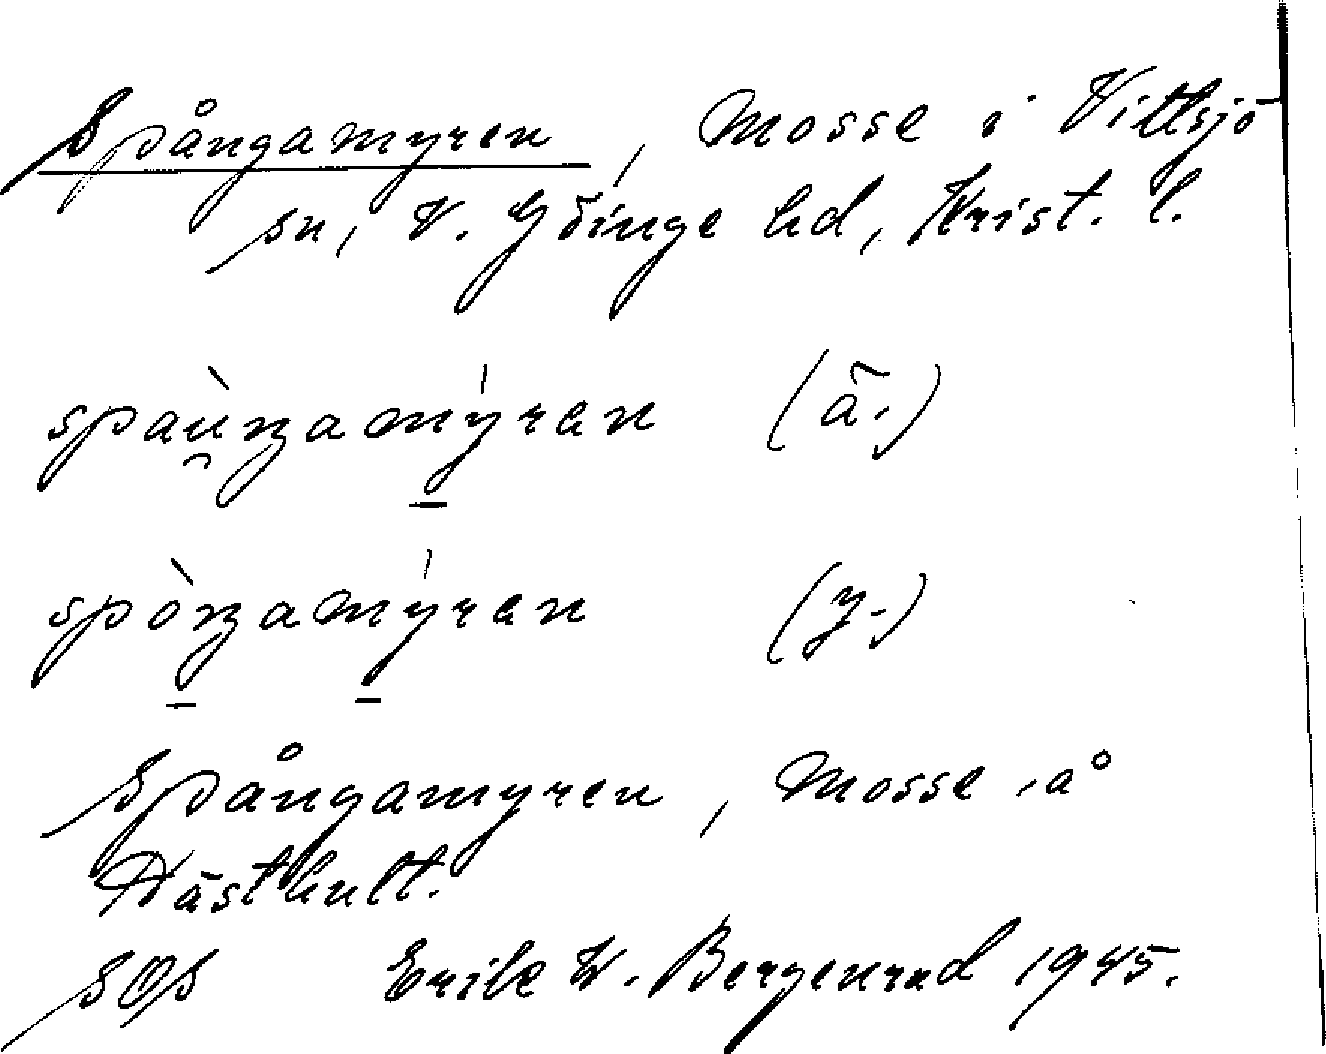 Spångamyren, Mosse i Vittsjö
sn, V. Göinge hd, Krist. l.
spau̯ŋamýren (ä.)
spòŋamýren (y.)
Spångamyren, Mosse å
Hästhult.
SOS Erik W. Bergenrud 1945.